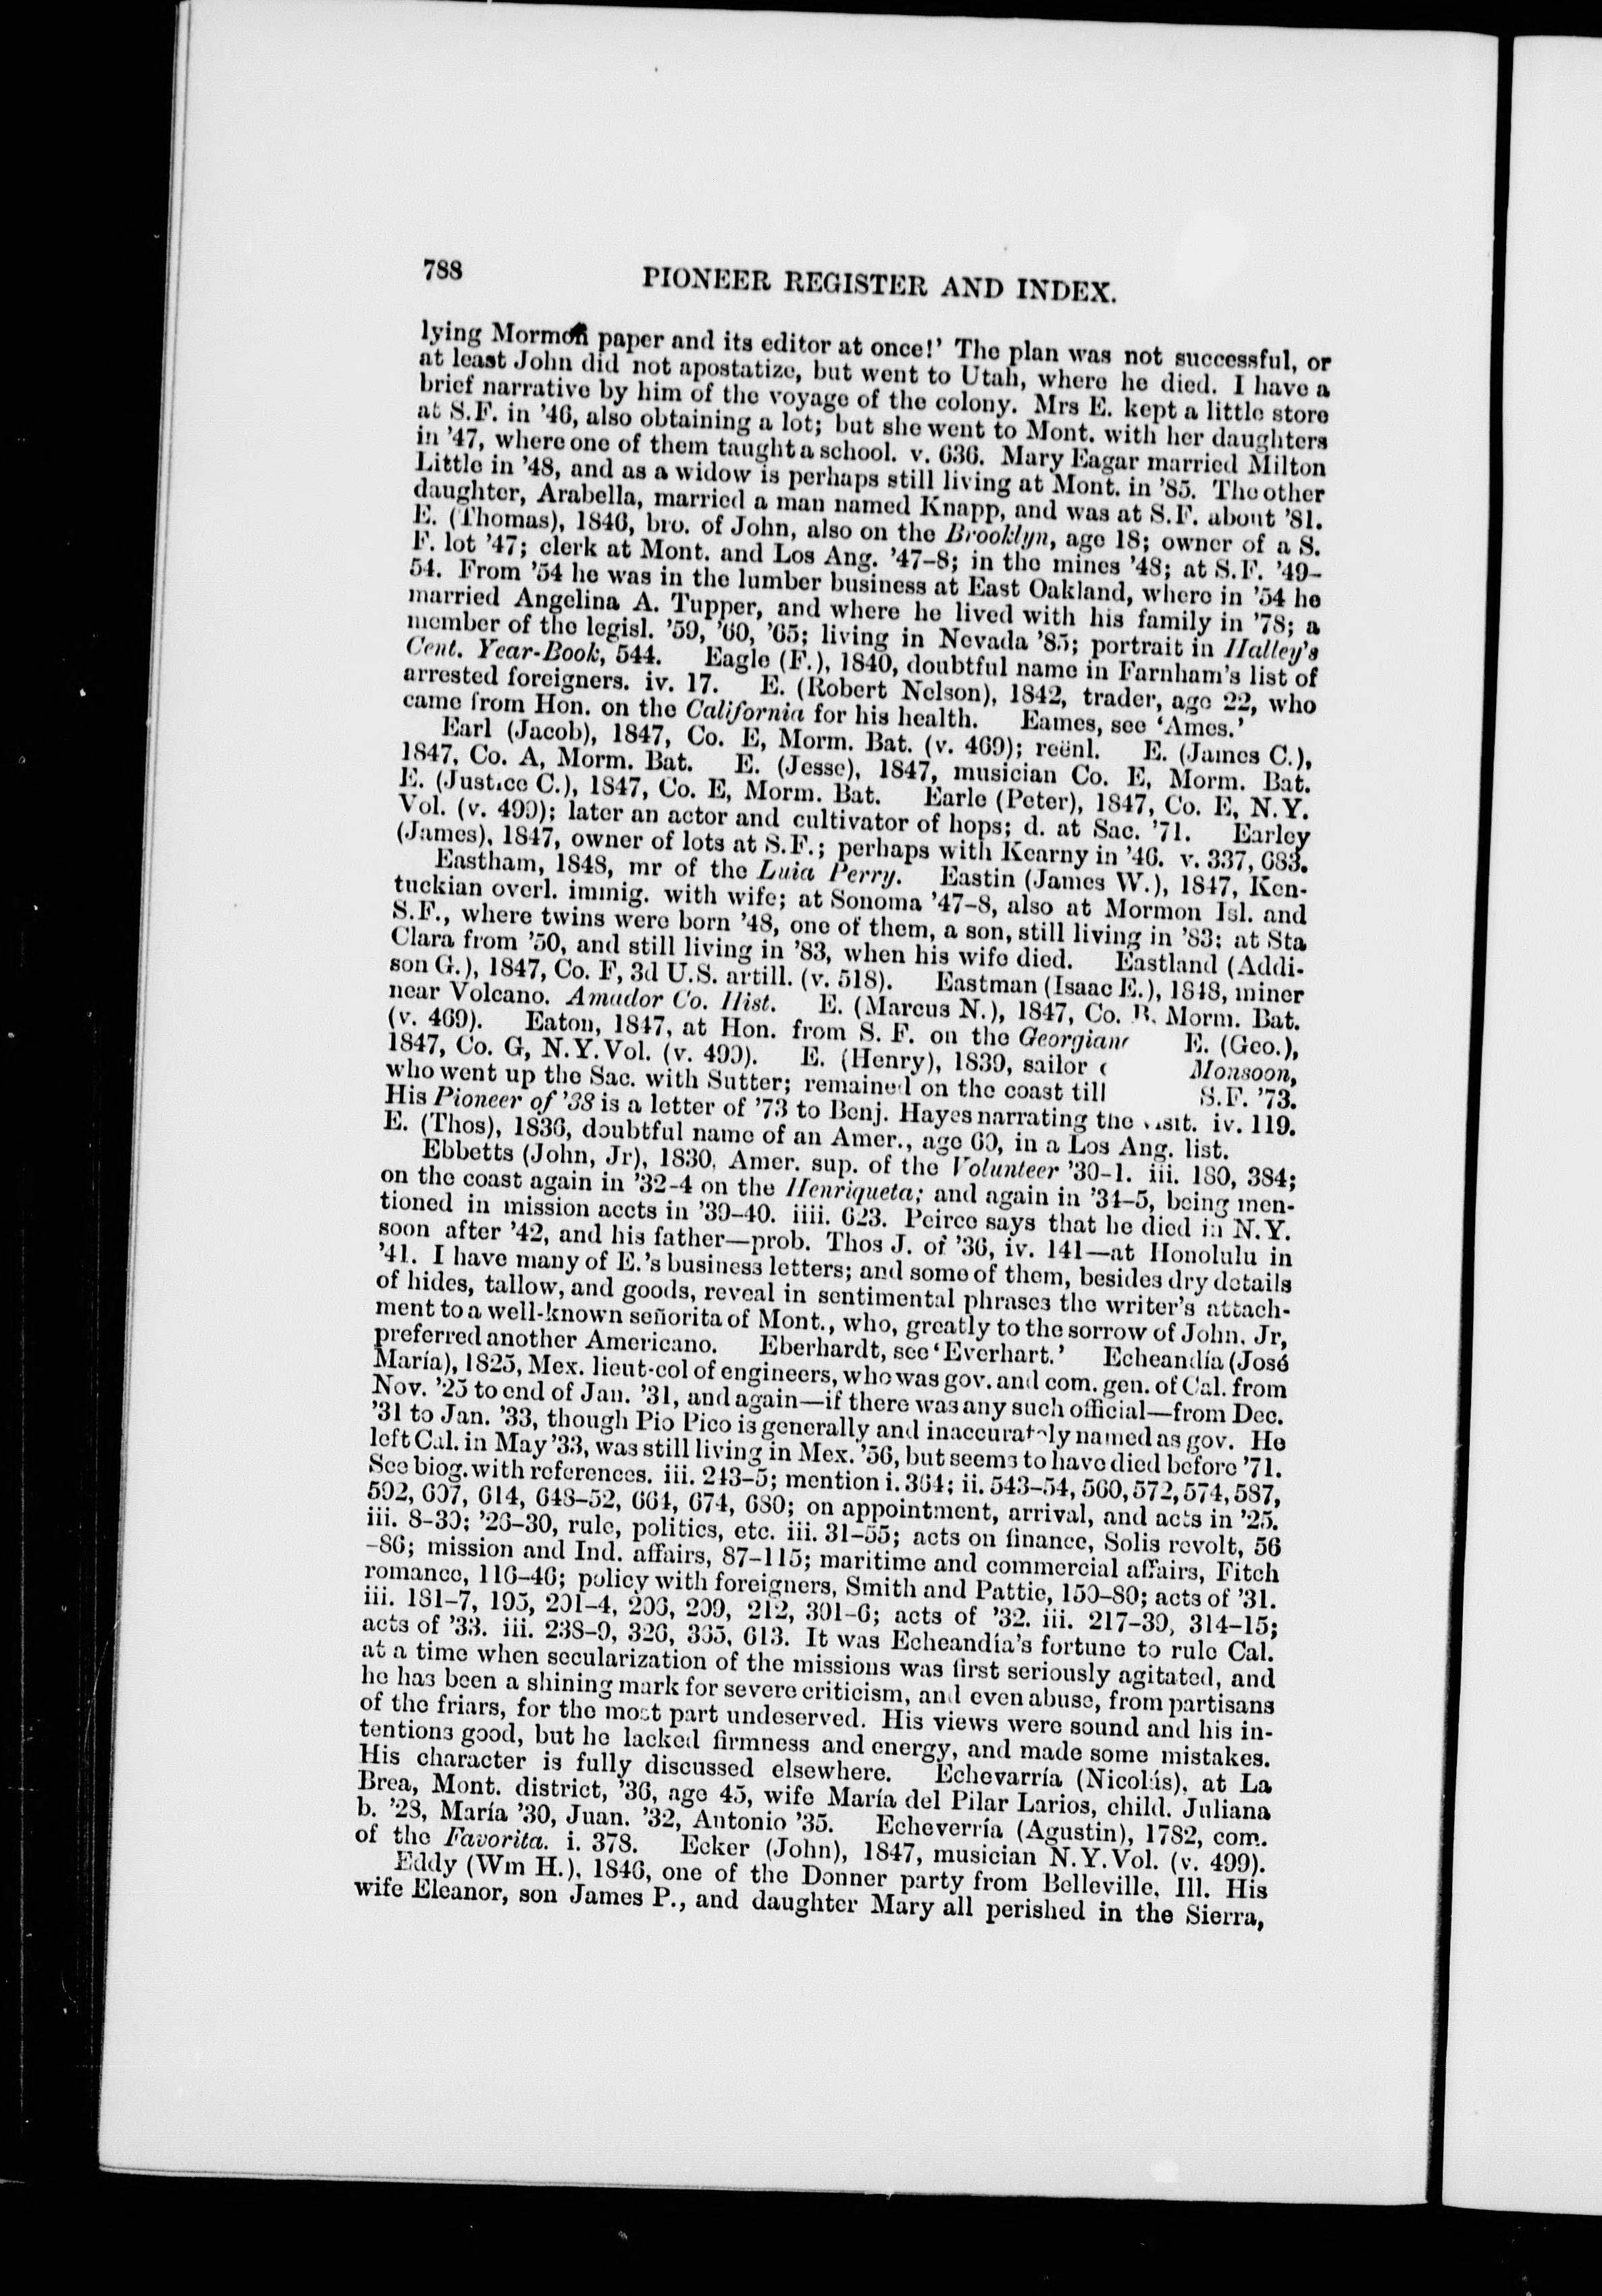 788
PIONEER REGISTER AND INDEX.
lying Mormon paper and its editor at once!' The plan was not successful, or
at least John did not apostatize, but went to Utah, where he died. I have a
brief narrative by him of the voyage of the colony. Mrs E. kept a little store
at S.F. in '46, also obtaining a lot; but she went to Mont. with her daughters
in '47, where one of them taught a school. v. 636. Mary Eagar married Milton
Little in '48, and as a widow is perhaps still living at Mont. in '85. The other
daughter, Arabella, married a man named Knapp, and was at S.F. about '81.
E. (Thomas), 1846, bro. of John, also on the Brooklyn, age 18; owner of a S.
F. lot '47; clerk at Mont. and Los Ang. '47-8; in the mines '48; at S.F. '49-
54. From '54 he was in the lumber business at East Oakland, where in '54 he
married Angelina A. Tupper, and where he lived with his family in '78; a
member of the legisl. '59, '60, '65; living in Nevada '85; portrait in Halley's
Cent. Year-Book, 544. Eagle (F.), 1840, doubtful name in Farnham's list of
arrested foreigners. iv. 17. E. (Robert Nelson), 1842, trader, age 22, who
came from Hon. on the California for his health. Eames, see 'Ames.'
Earl (Jacob), 1847, Co. E, Morm. Bat. (v. 469); reënl. E. (James C.),
1847, Co. A, Morm. Bat. E. (Jesse), 1847, musician Co. E, Morm. Bat.
E. (Justice C.), 1847, Co. E, Morm. Bat. Earle (Peter), 1847, Co. E, N.Y.
Vol. (v. 499); later an actor and cultivator of hops; d. at Sac. '71. Earley
(James), 1847, owner of lots at S.F.; perhaps with Kearny in '46. v. 337, 683.
Eastham, 1848, mr of the Luia Perry. Eastin (James W.), 1847, Ken-
tuckian overl. immig. with wife; at Sonoma '47-8, also at Mormon Isl. and
S.F., where twins were born '48, one of them, a son, still living in '83; at Sta
Clara from '50, and still living in '83, when his wife died. Eastland (Addi-
son G.), 1847, Co. F, 3d U.S. artill. (v. 518). Eastman (Isaac E.), 1848, miner
near Volcano. Amador Co. Hist. E. (Marcus N.), 1847, Co. B. Morm. Bat.
(v. 469). Eaton, 1847, at Hon. from S. F. on the Georgian E. (Geo.),
1847, Co. G, N.Y. Vol. (v. 499). E. (Henry), 1839, sailor Monsoon,
who went up the Sac. with Sutter; remained on the coast till S.F. '73.
His Pioneer of '38 is a letter of '73 to Benj. Hayes narrating the visit. iv. 119.
E. (Thos), 1836, doubtful name of an Amer., age 60, in a Los Ang. list.
Ebbetts (John, Jr), 1830, Amer. sup. of the Volunteer '30-1. iii. 180, 384;
on the coast again in '32-4 on the Henriqueta; and again in '34-5, being men-
tioned in mission accts in '39-40. iiii. 623. Peirce says that he died in N.Y.
soon after '42, and his father—prob. Thos J. of '36, iv. 141—at Honolulu in
'41. I have many of E.'s business letters; and some of them, besides dry details
of hides, tallow, and goods, reveal in sentimental phrases the writer's attach-
ment to a well-known señorita of Mont., who, greatly to the sorrow of John, Jr,
preferred another Americano. Eberhardt, see 'Everhart.' Echeandía (José
María), 1825, Mex. lieut-col of engineers, who was gov. and com. gen. of Cal. from
Nov. '25 to end of Jan. '31, and again—if there was any such official—from Dec.
'31 to Jan. '33, though Pio Pico is generally and inaccurately named as gov. He
left Cal. in May '33, was still living in Mex. '56, but seems to have died before '71.
See biog. with references. iii. 243-5; mention i. 364; ii. 543-54, 560, 572, 574, 587,
592, 607, 614, 648-52, 664, 674, 680; on appointment, arrival, and acts in '25.
iii. 8-30; '26-30, rule, politics, etc. iii. 31-55; acts on finance, Solis revolt, 56
-86; mission and Ind. affairs, 87-115; maritime and commercial affairs, Fitch
romance, 116-46; policy with foreigners, Smith and Pattie, 150-80; acts of '31.
iii. 181-7, 195, 201-4, 206, 209, 212, 301-6; acts of '32. iii. 217-39, 314-15;
acts of '33. iii. 238-9, 326, 365, 613. It was Echeandía's fortune to rule Cal.
at a time when secularization of the missions was first seriously agitated, and
he has been a shining mark for severe criticism, and even abuse, from partisans
of the friars, for the most part undeserved. His views were sound and his in-
tentions good, but he lacked firmness and energy, and made some mistakes.
His character is fully discussed elsewhere. Echevarría (Nicolás), at La
Brea, Mont. district, '36, age 45, wife María del Pilar Larios, child. Juliana
b. '28, María '30, Juan. '32, Antonio '35. Echeverría (Agustin), 1782, com.
of the Favorita. i. 378. Ecker (John), 1847, musician N.Y. Vol. (v. 499).
Eddy (Wm H.), 1846, one of the Donner party from Belleville, Ill. His
wife Eleanor, son James P., and daughter Mary all perished in the Sierra,